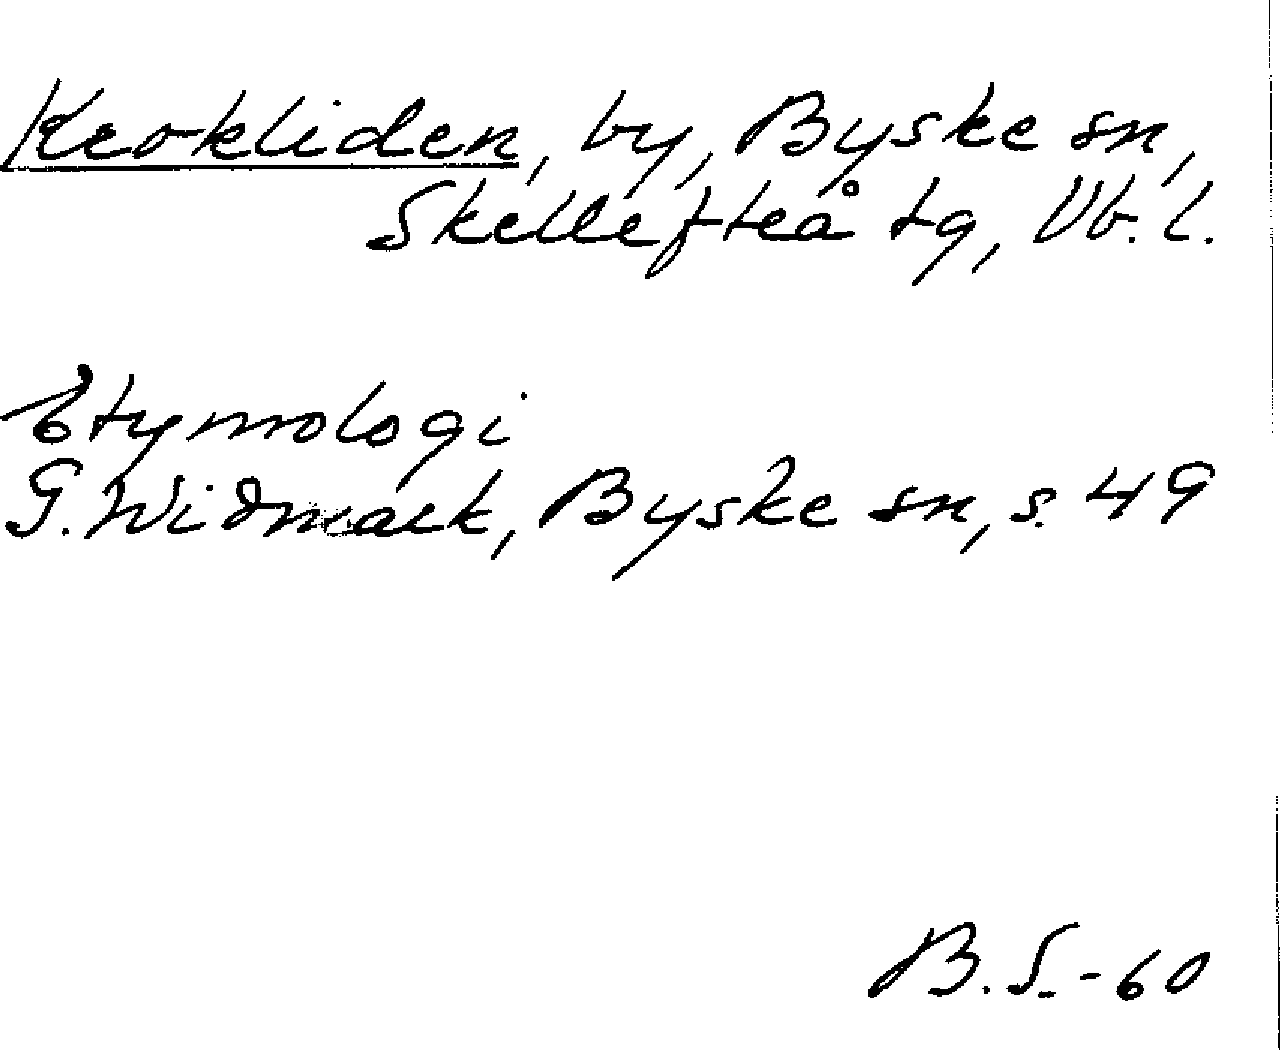 Krokliden, by, Byske sn,
Skellefteå tg, Vb. l.
Etymologi
G. Widmark, Byske sn, s. 49
B. S. - 60